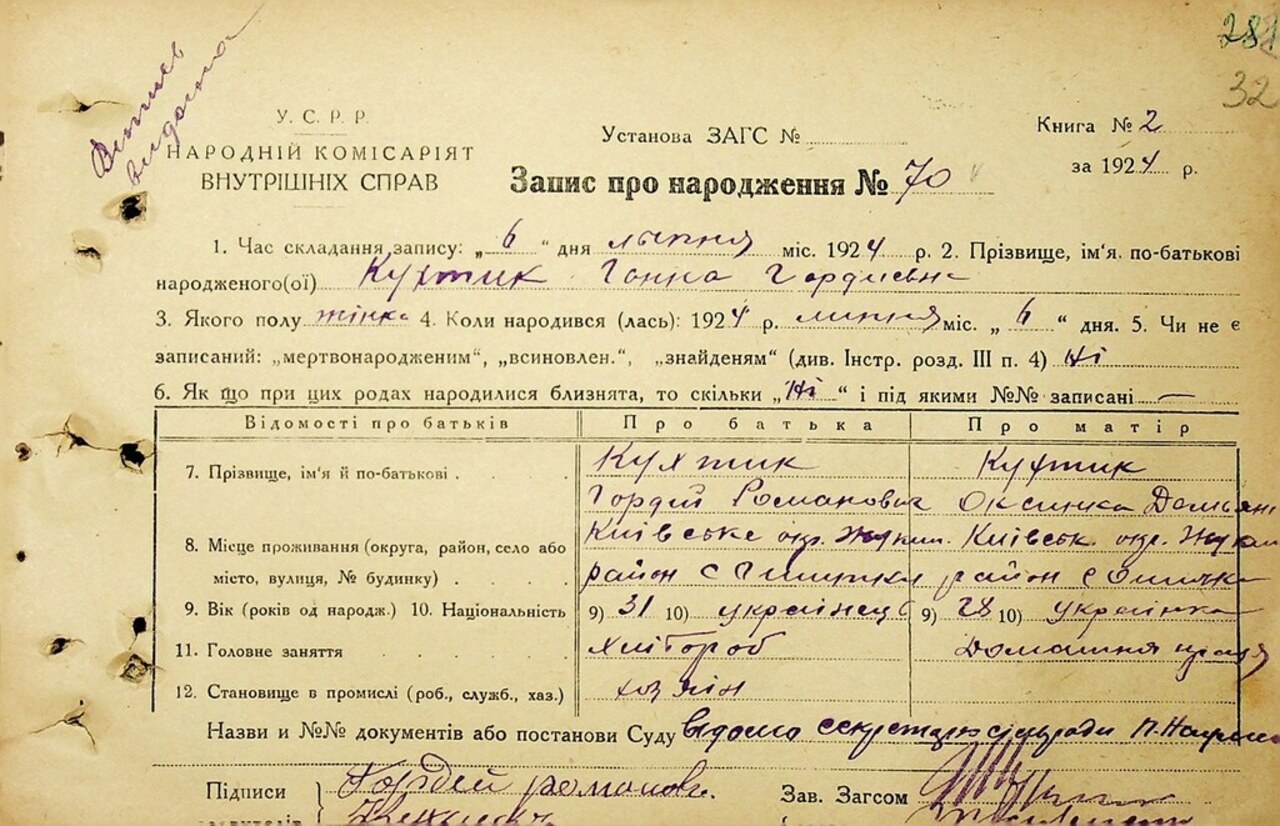 281
32
видана
У. С. Р. Р.
НАРОДНІЙ КОМІСАРІЯТ
ВНУТРІШНІХ СПРАВ
Установа ЗАГС №
Книга № 2
за 1924 р.
Запис про народження № 70
1. Час складання запису: „ 6 “ дня липня міс. 1924 р. 2. Прізвище, ім'я, по-батькові
народженого(ої) Кухтик Ганна Гордиевна
3. Якого полу жінка 4. Коли народився (лась): 1924 р. липня міс. „ 6 “ дня. 5. Чи не є
записаний: „мертвонародженим“, „всиновлен.“, „знайденям“ (див. Інстр. розд. III п. 4) Ні
6. Як що при цих родах народилися близнята, то скільки „Ні“ і під якими №№ записані —
Відомості про батьків Про батька Про матір
7. Прізвище, ім'я й по-батькові . . . . Кухтик Кухтик
Гордій Романович Оксинка
8. Місце проживання (округа, район, село або Київське окр. Київськ. окр.
місто, вулиця, № будинку) . . . . район с район с
9. Вік (років од народж.) 10. Національність 9) 31 10) українець 9) 28 10) українка
11. Головне заняття . . . . . Хлібороб Домашня праця
12. Становище в промислі (роб., служб., хаз.) хозяін
Назви и №№ документів або постанови Суду відомо секретарю сільради П.
Підписи Гордей романов. Зав. Загсом